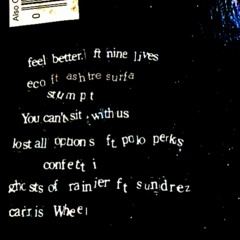 Also
0
feel better. ft nine lives
eco ft ashtre surfa
stumpt
You can't sit with us
lost all options ft. polo perks
confetti
ghosts of rainier ft sundrez
carris Wheel